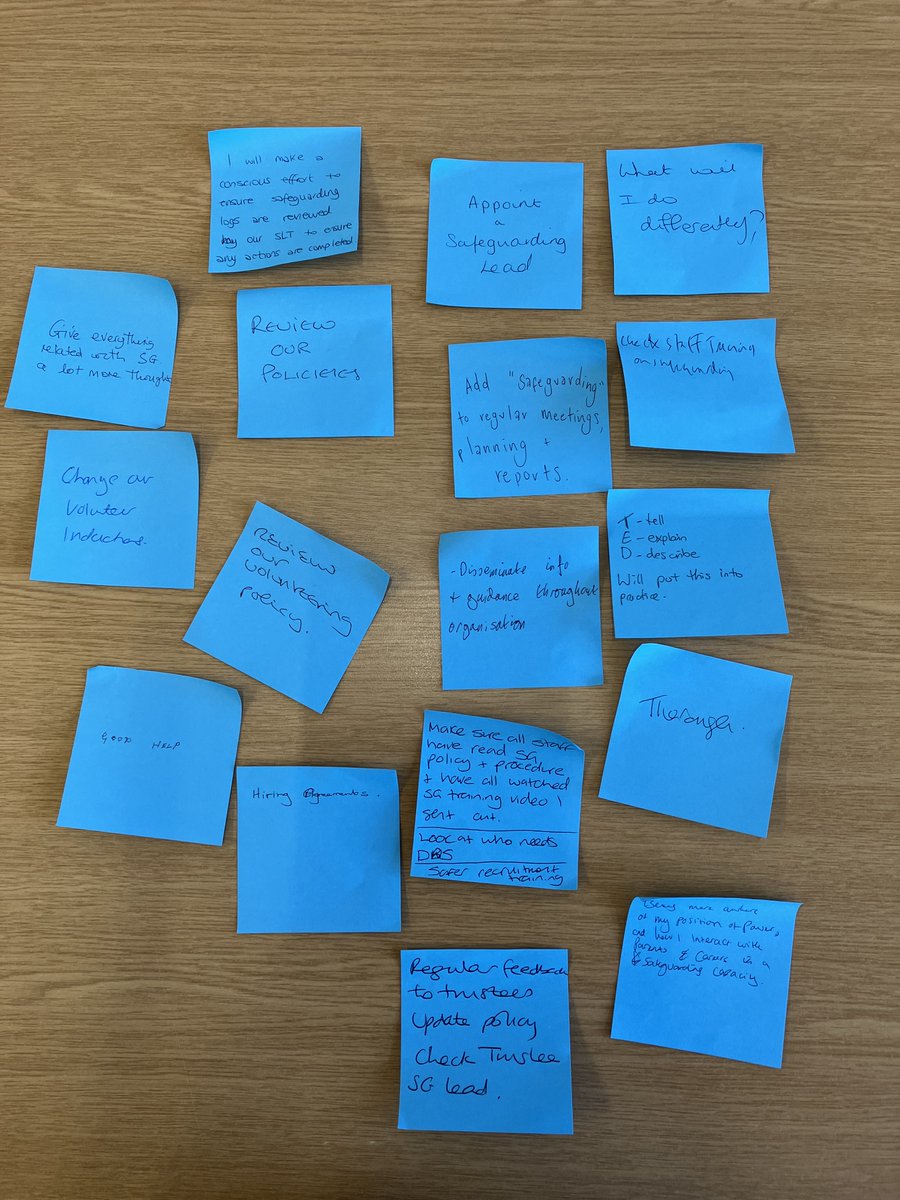 I will make a
conscious effort to
ensure safeguarding
logs are reviewed
by our SLT to ensure
any actions are completed
Appoint
a
Safeguarding
Lead
What will
I do
differently?
Give everything
related with SG
a lot more thought
REVIEW
OUR
POLICIES
Add "Safeguarding"
to regular meetings,
planning +
reports.
Check Staff Training
on safeguarding
Change our
Volunteer
Inductions.
REVIEW
our
volunteering
policy.
- Disseminate info
+ guidance throughout
organisation
T - tell
E - explain
D - describe
Will put this into
practice.
GOOD HELP
Hiring Agreements.
Make sure all staff
have read SG
policy + procedure
+ have all watched
SG training video I
sent out.
Look at who needs
DBS
Safer recruitment
training
Thorough.
Being more aware
of my position of power,
and how I interact with
Parents & Carers in a
Safeguarding Capacity.
Regular feedback
to trustees
Update policy
Check Trustee
SG lead.